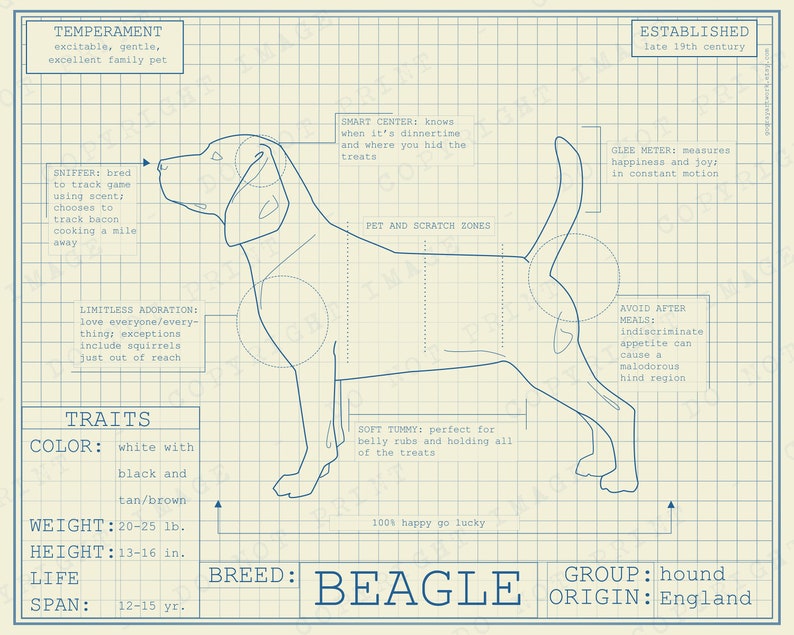 TEMPERAMENT
excitable, gentle,
excellent family pet
ESTABLISHED
late 19th century
SMART CENTER: knows
when it's dinnertime
and where you hid the
treats
GLEE METER: measures
happiness and joy;
in constant motion
SNIFFER: bred
to track game
using scent;
chooses to
track bacon
cooking a mile
away
PET AND SCRATCH ZONES
LIMITLESS ADORATION:
love everyone/every-
thing; exceptions
include squirrels
just out of reach
AVOID AFTER
MEALS:
indiscriminate
appetite can
cause a
malodorous
hind region
SOFT TUMMY: perfect for
belly rubs and holding all
of the treats
100% happy go lucky
TRAITS
COLOR: white with
black and
tan/brown
WEIGHT: 20-25 lb.
HEIGHT: 13-16 in.
LIFE
SPAN: 12-15 yr.
BREED: BEAGLE
GROUP: hound
ORIGIN: England
DO NOT PRINT
COPYRIGHT IMAGE